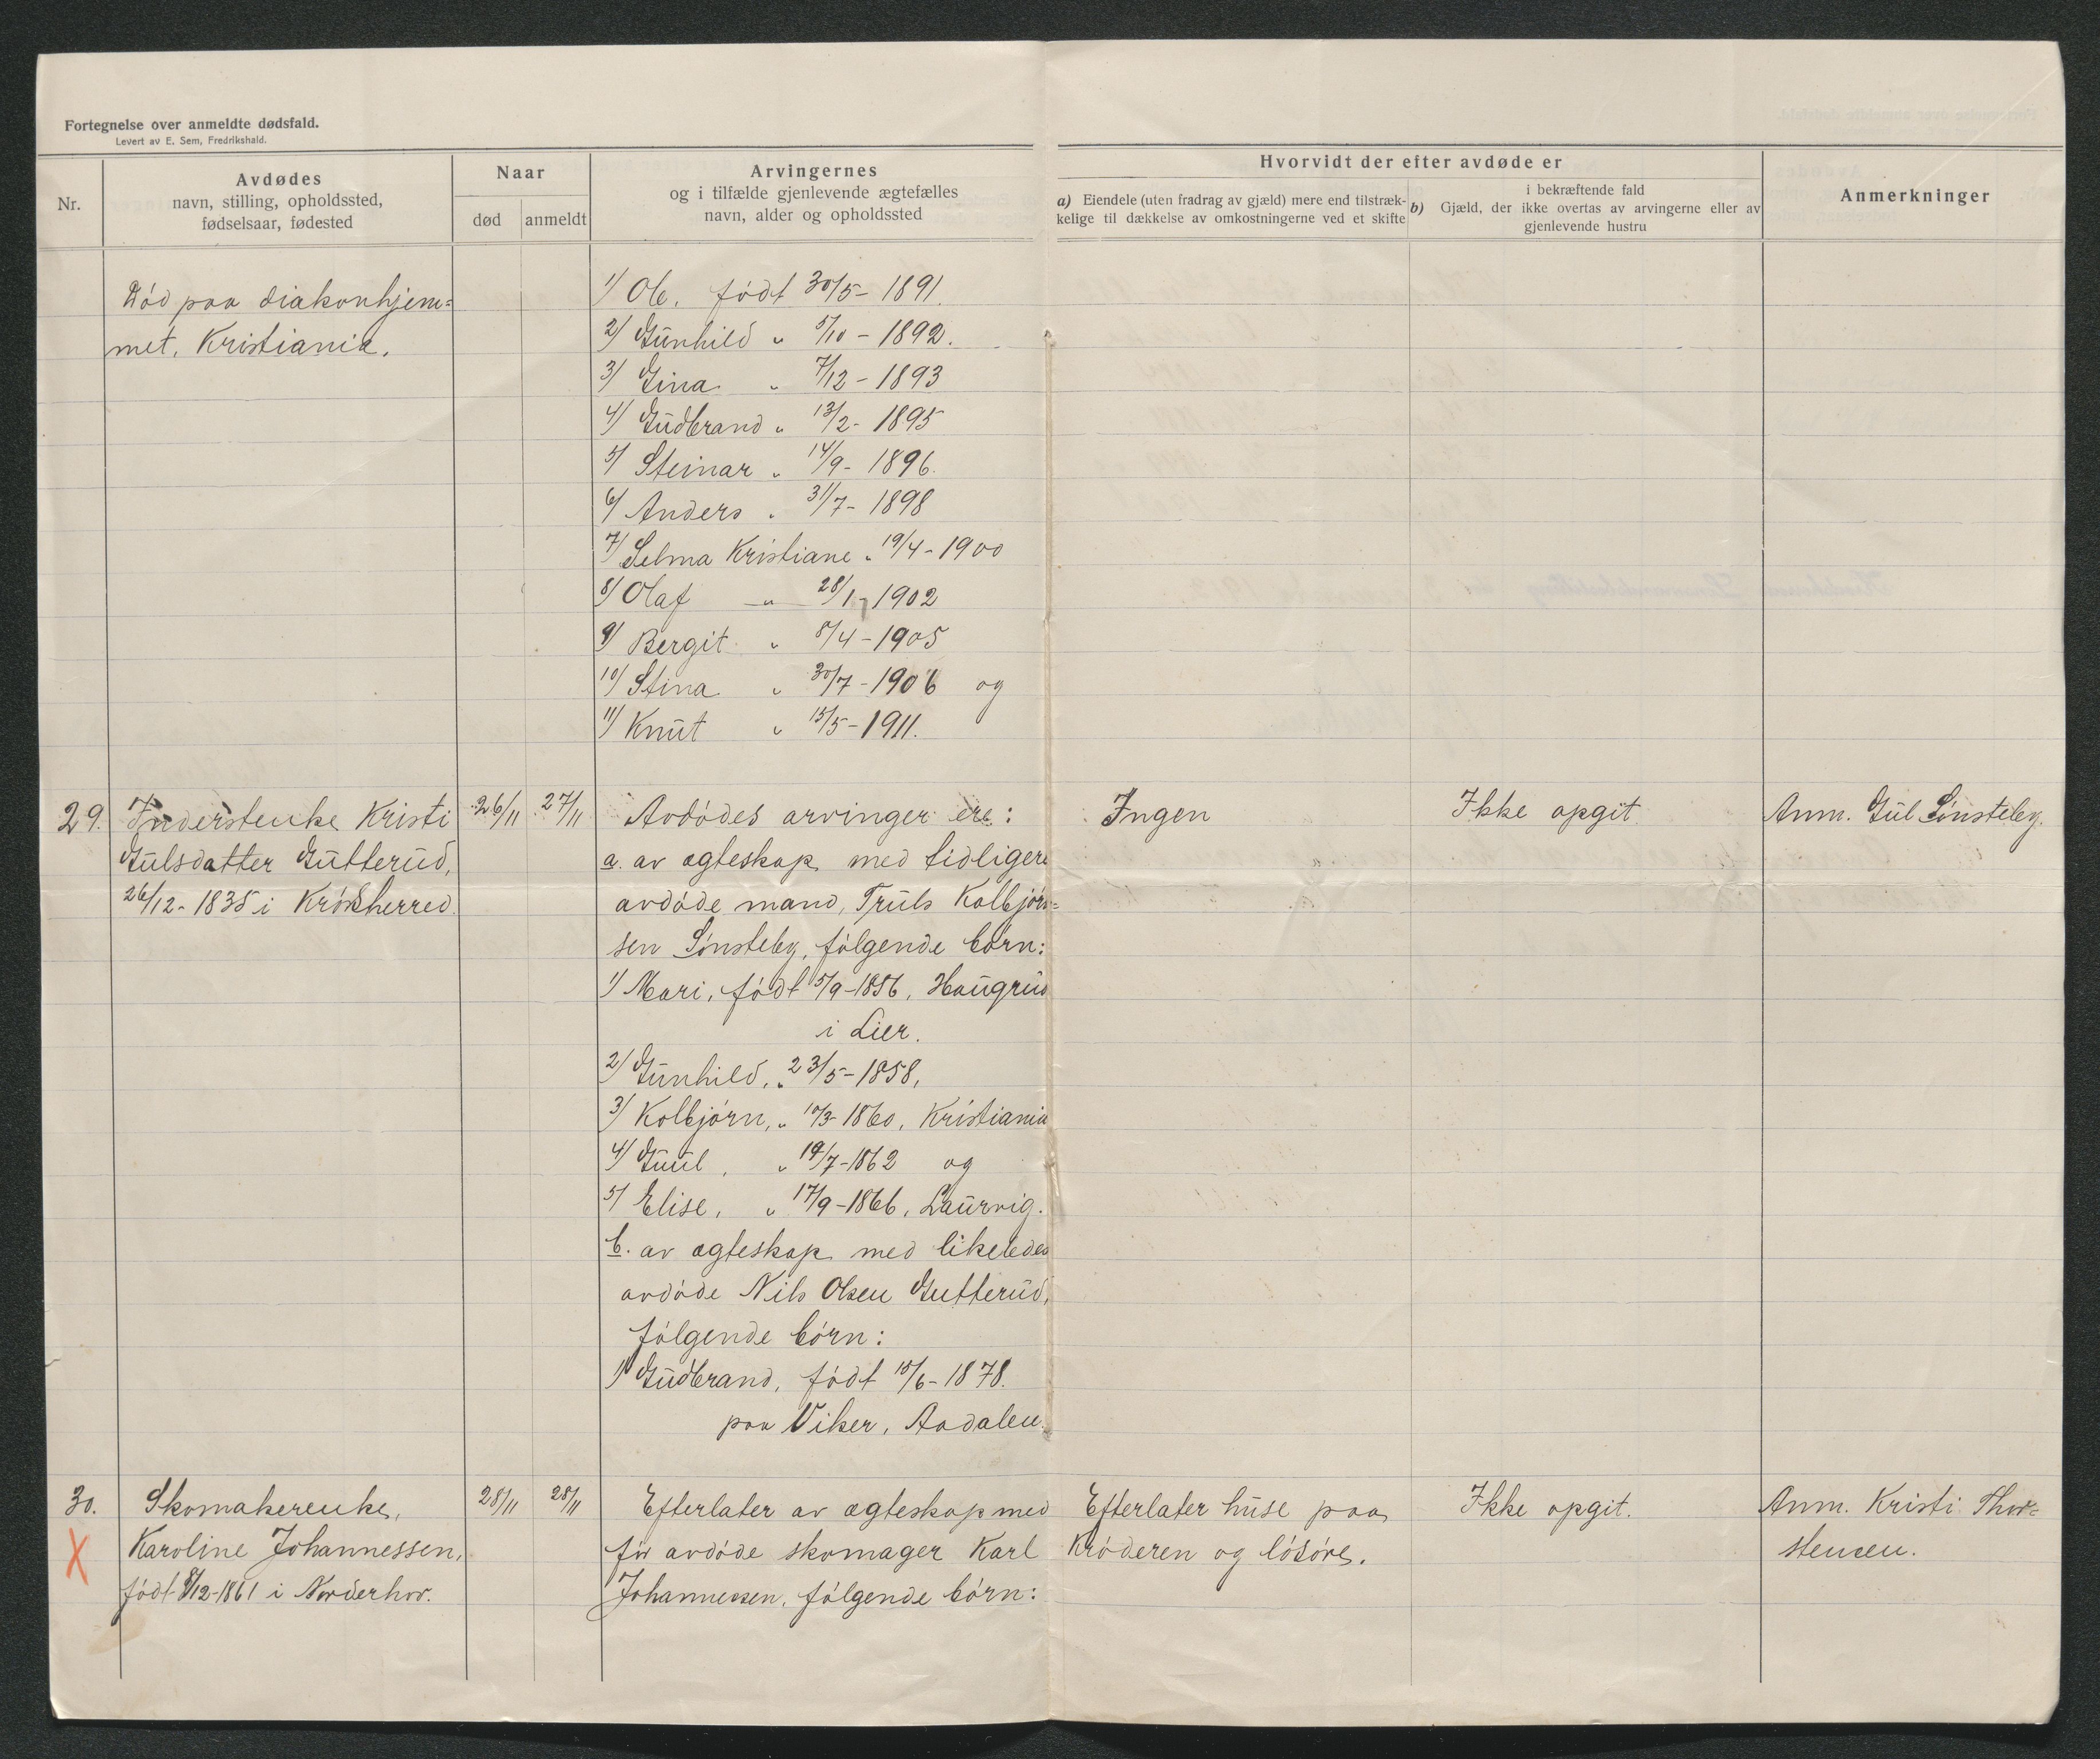 Fortegnelse over anmeldte dødsfald.
Levert av E. Sem, Fredrikshald.
Nr.
Avdødes
navn, stilling, opholdssted,
fødselsaar, fødested
Naar
død
anmeldt
Arvingernes
og i tilfælde gjenlevende ægtefælles
navn, alder og opholdssted
Hvorvidt der efter avdøde er
a) Eiendele (uten fradrag av gjæld) mere end tilstræk-
kelige til dækkelse av omkostningerne ved et skifte
i bekræftende fald
b) Gjæld, der ikke overtas av arvingerne eller av
gjenlevende hustru
Anmerkninger
Død paa diakonhjem=
met, Kristiania.
1) Ole, født 30/5 - 1891.
2) Gunhild " 5/10 - 1892.
3) Gina " 7/12 - 1893
4) Gudbrand " 13/2 - 1895
5) Steinar " 14/9 - 1896.
6) Anders " 31/7 - 1898
7) Selma Kristiane " 19/4 - 1900
8) Olaf " 28/1 - 1902
9) Bergit " 8/4 - 1905
10) Stina " 30/7 - 1906 og
11) Knut " 15/5 - 1911.
29. Inderstenke Kristi 26/11 27/11 Avdødes arvinger ere: Ingen Ikke opgit Anm. Gul Sønsteby.
Gulsdatter Gutterud, a. av ægteskap med tidligere
26/12 - 1835 i Krødsherred. avdøde mand, Truls Kolbjørn=
sen Sønsteby, følgende børn:
1) Mari, født 5/9 - 1856, Haugrud
i Lier.
2) Gunhild, " 23/5 - 1858,
3) Kolbjørn, " 10/3 - 1860, Kristiania
4) Guul, " 19/7 - 1862 og
5) Elise, " 17/9 - 1866, Laurvig.
b. av ægteskap med likeledes
avdøde Nils Olsen Gutterud,
følgende børn:
1) Gudbrand, født 15/6 - 1878.
paa Viker, Aadalen.
30. Skomakerenke, 28/11 28/11 Efterlater av ægteskap med Efterlater huse paa Ikke opgit. Anm. Kristi Thor=
X Karoline Johannessen, før avdøde skomager Karl Krøderen og løsøre. stensen.
født 8/12 - 1861 i Norderhov. Johannessen, følgende børn: